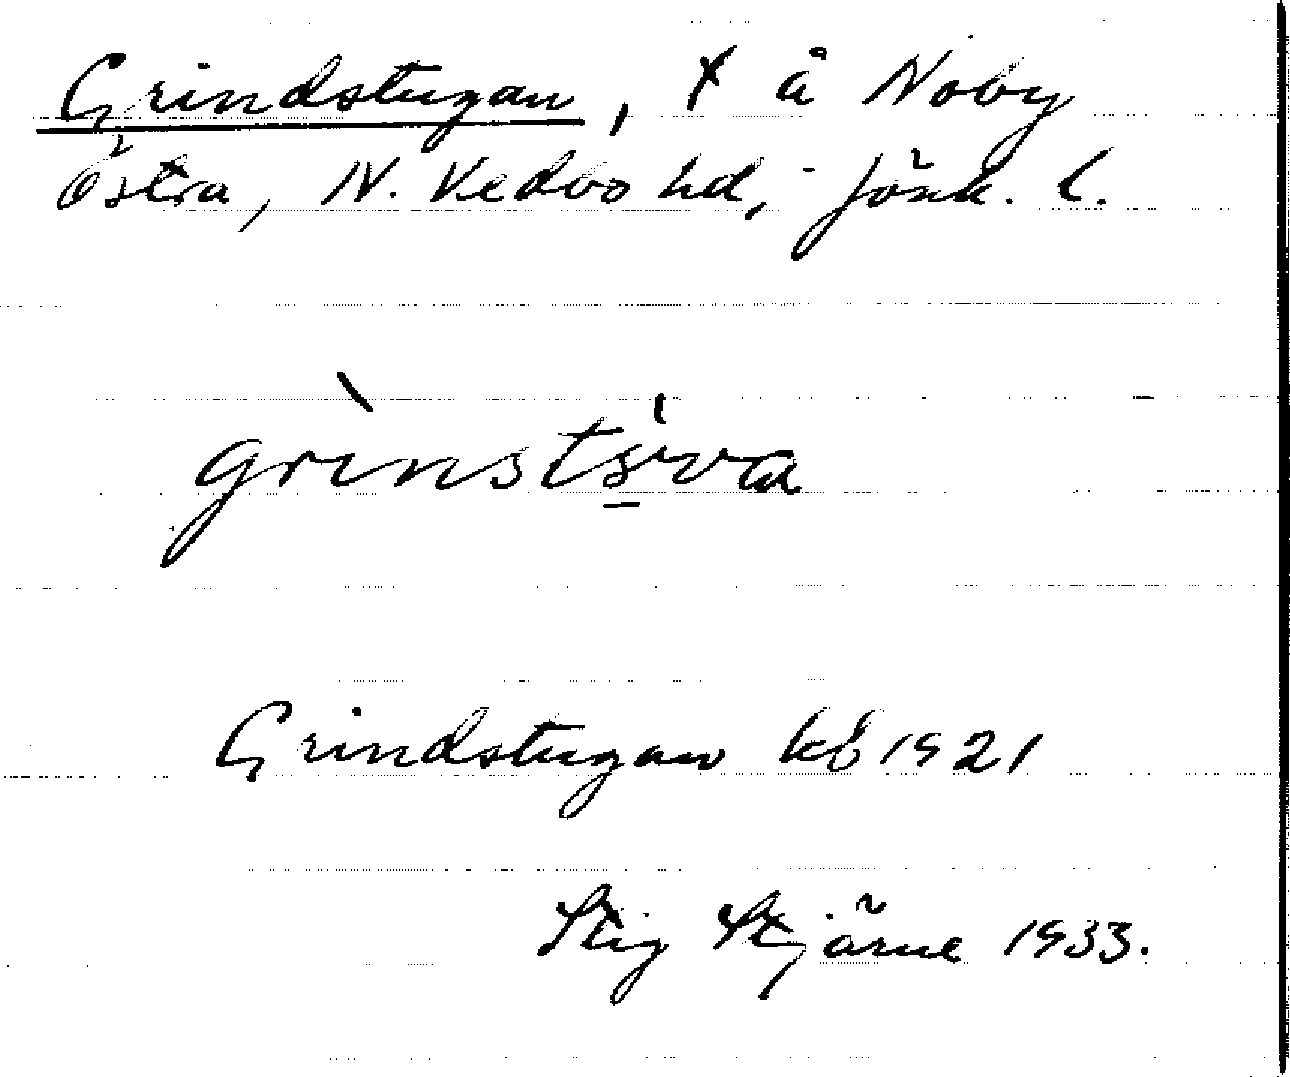 Grindstugan, † å Noby
Östra, N. Vedbo hd, Jönk. l.
Grindstugan kb 1921
Stig Stjärne 1933.